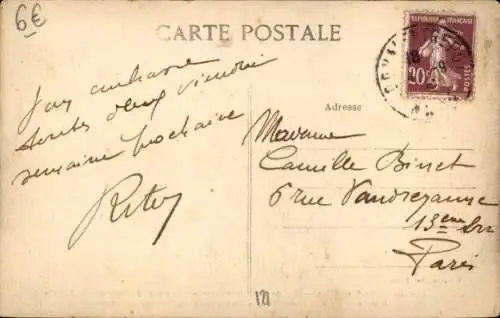 6€
CARTE POSTALE
REPUBLIQUE FRANÇAISE
20c
POSTES
18
Adresse
toutes deux viendrai
semaine prochaine
Madame
Camille Binet
6 rue Vandrezanne
13eme Arr
Paris
121